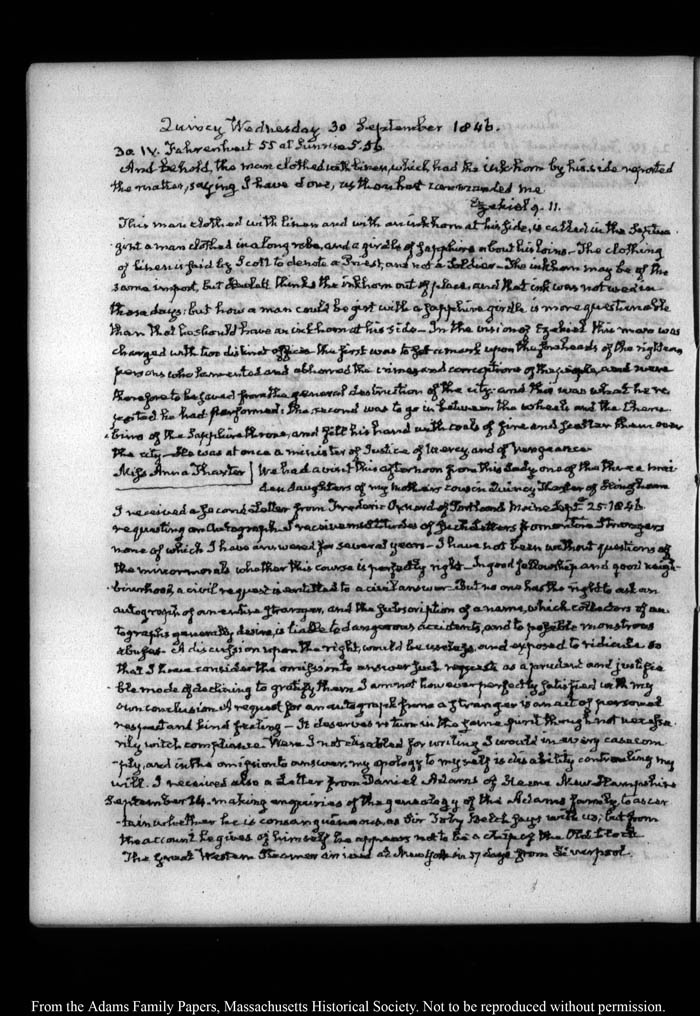 Quincy Wednesday 30 September 1846.
30. IV. Fahrenheit 55 at Sunrise 5.56
And behold, the man clothed with linen, which had the inkhorn by his side reported
the matter, saying I have done, as thou hast commanded me
Ezekiel 9. 11.
This man clothed with linen and with an inkhorn at his side, is called in the Septua
gint a man clothed in a long robe, and a girdle of Sapphire about his loins — The clothing
of linen is said by Scott to denote a Priest, and not a Soldier — The inkhorn may be of the
same import, but thinks the inkhorn out of place, and that ink was not used in
those days; but how a man could be girt with a sapphire girdle is more questionable
than that he should have an inkhorn at his side — In the vision of Ezekiel this man was
charged with two distinct offices the first was to set a mark upon the foreheads of the righteous
persons who lamented and abhorred the crimes and corruptions of the people, and were
therefore to be saved from the general destruction of the city and this was what he re
ported he had performed: the second was to go in between the wheels and the Cheru
bims of the Sapphire throne, and fill his hand with coals of fire and scatter them over
the city — He was at once a minister of Justice of Mercy and of Vengeance
Miss Anna Thaxter We had a visit this afternoon from this Lady one of the three mai
den daughters of my mothers cousin Quincy Thaxter of Hingham
I received a second Letter from Frederic of Portland Maine Septr. 25. 1846
requesting an Autograph I receive multitudes of such Letters from entire Strangers
none of which I have answered for several years — I have not been without questions of
the minor morals whether this course is perfectly right — In good fellowship and good neigh-
bourhood, a civil request is entitled to a civil answer — But no one has the right to ask an
autograph of an entire stranger, and the subscription of a name, which collectors of au
tographs generally desire, is liable to dangerous accidents, and to possible monstrous
abuses — A discussion upon the right, would be useless, and exposed to ridicule so
that I have consider the omission to answer such requests as a prudent and justifia
ble mode of declining to gratify them I am not however perfectly satisfied with my
own conclusion A request for an autograph from a stranger is an act of personal
respect and kind feeling — It deserves return in the same spirit though not necessa
rily with compliance. Were I not disabled for writing I would in every case com
-ply, and in the omission to answer, my apology to myself is disability controuling my
will. I received also a Letter from Daniel Adams of Keene New Hampshire
September 24. making enquiries of the genealogy of the Adams family to ascer
-tain whether he is consanguineous, as Sir Toby Belch says with us; but from
the account he gives of himself he appears not to be a chip of the Old block
The Great Western Steamer arrived at New York in 17 days from Liverpool.
From the Adams Family Papers, Massachusetts Historical Society. Not to be reproduced without permission.